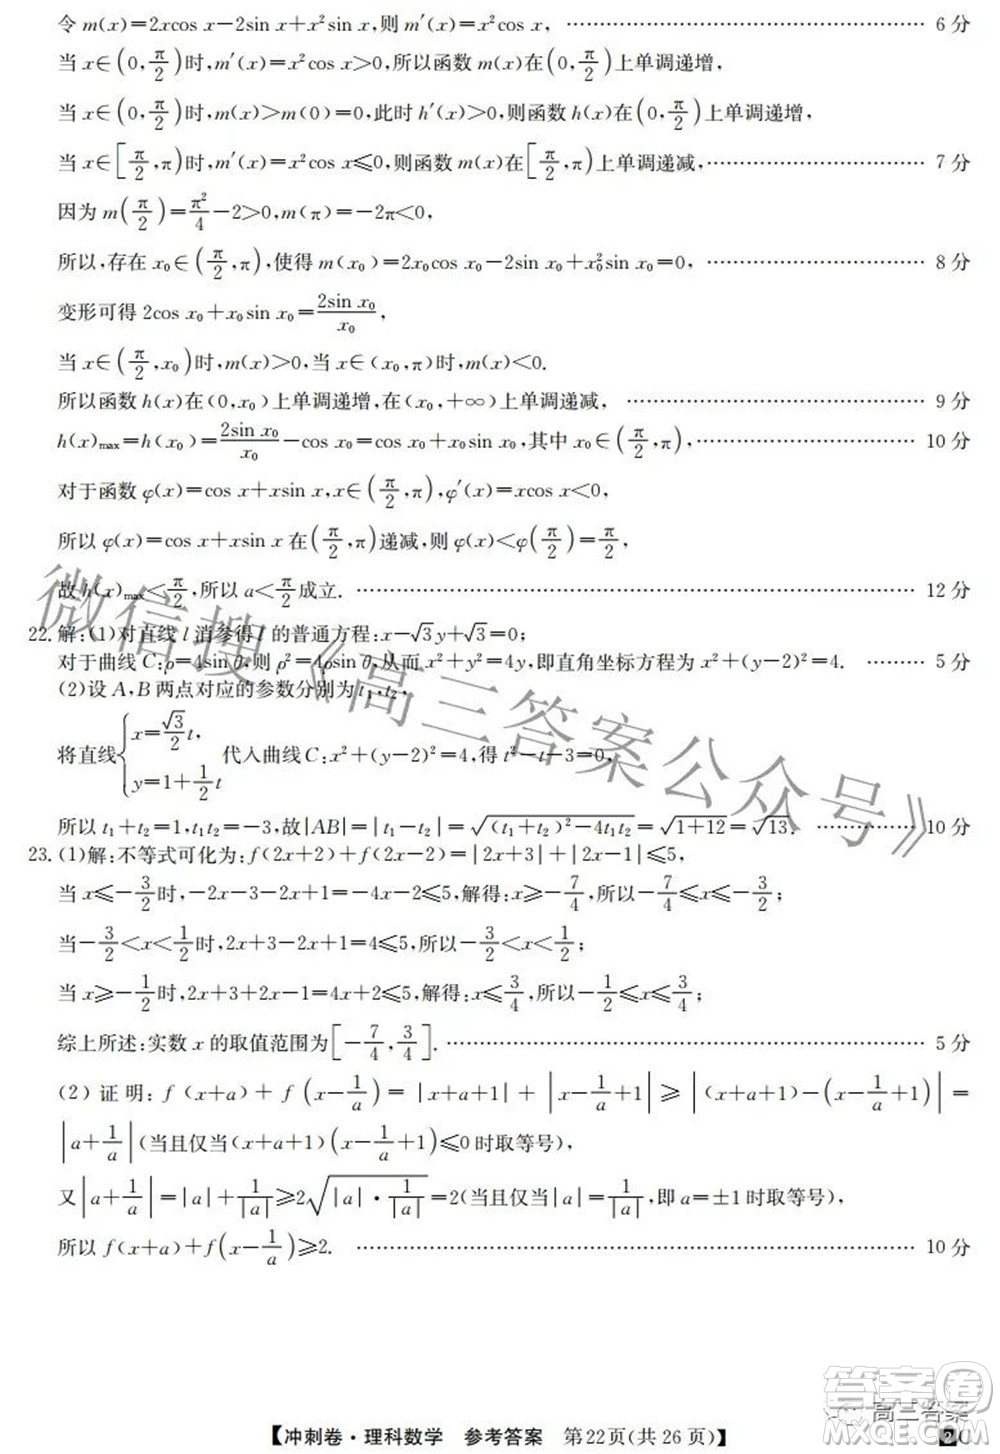 令 m(x)=2xcos x-2sin x+x²sin x,则 m′(x)=x²cos x, …… 6 分
当 x∈(0,π/2)时,m′(x)=x²cos x>0,所以函数 m(x)在(0,π/2)上单调递增,
当 x∈(0,π/2)时,m(x)>m(0)=0,此时 h′(x)>0,则函数 h(x)在(0,π/2)上单调递增,
当 x∈[π/2,π)时,m′(x)=x²cos x≤0,则函数 m(x)在[π/2,π)上单调递减, …… 7 分
因为 m(π/2)=π²/4-2>0,m(π)=-2π<0,
所以,存在 x₀∈(π/2,π),使得 m(x₀)=2x₀cos x₀-2sin x₀+x₀²sin x₀=0, …… 8 分
变形可得 2cos x₀+x₀sin x₀=2sin x₀/x₀,
当 x∈(π/2,x₀)时,m(x)>0,当 x∈(x₀,π)时,m(x)<0.
所以函数 h(x)在(0,x₀)上单调递增,在(x₀,+∞)上单调递减, …… 9 分
h(x)max=h(x₀)=2sin x₀/x₀-cos x₀=cos x₀+x₀sin x₀,其中 x₀∈(π/2,π), …… 10 分
对于函数 φ(x)=cos x+xsin x,x∈(π/2,π),φ′(x)=xcos x<0,
所以 φ(x)=cos x+xsin x 在(π/2,π)递减,则 φ(x)<φ(π/2)=π/2,
故 h(x)max<π/2,所以 a<π/2成立. …… 12 分
22.解:(1)对直线 l 消参得 l 的普通方程:x-√3y+√3=0;
对于曲线 C:ρ=4sin θ,则 ρ²=4ρsin θ,从而 x²+y²=4y,即直角坐标方程为 x²+(y-2)²=4. …… 5 分
(2)设 A,B 两点对应的参数分别为 t₁,t₂,
将直线{x=√3/2 t, y=1+1/2 t 代入曲线 C:x²+(y-2)²=4,得 t²-t-3=0,
所以 t₁+t₂=1,t₁t₂=-3,故|AB|=|t₁-t₂|=√((t₁+t₂)²-4t₁t₂)=√(1+12)=√13. …… 10 分
23.(1)解:不等式可化为:f(2x+2)+f(2x-2)=|2x+3|+|2x-1|≤5,
当 x≤-3/2时,-2x-3-2x+1=-4x-2≤5,解得:x≥-7/4,所以-7/4≤x≤-3/2;
当-3/2<x<1/2时,2x+3-2x+1=4≤5,所以-3/2<x<1/2;
当 x≥-1/2时,2x+3+2x-1=4x+2≤5,解得:x≤3/4,所以-1/2≤x≤3/4;
综上所述:实数 x 的取值范围为[-7/4,3/4]. …… 5 分
(2)证明:f(x+a)+f(x-1/a)=|x+a+1|+|x-1/a+1|≥|(x+a+1)-(x-1/a+1)|=
|a+1/a|(当且仅当(x+a+1)(x-1/a+1)≤0 时取等号),
又|a+1/a|=|a|+1/|a|≥2√(|a|·1/|a|)=2(当且仅当|a|=1/|a|,即a=±1 时取等号),
所以 f(x+a)+f(x-1/a)≥2. …… 10 分
微信搜《高三答案公众号》
高三答案
答案圈
MXQE.COM
【冲刺卷·理科数学 参考答案 第22页(共 26 页)】